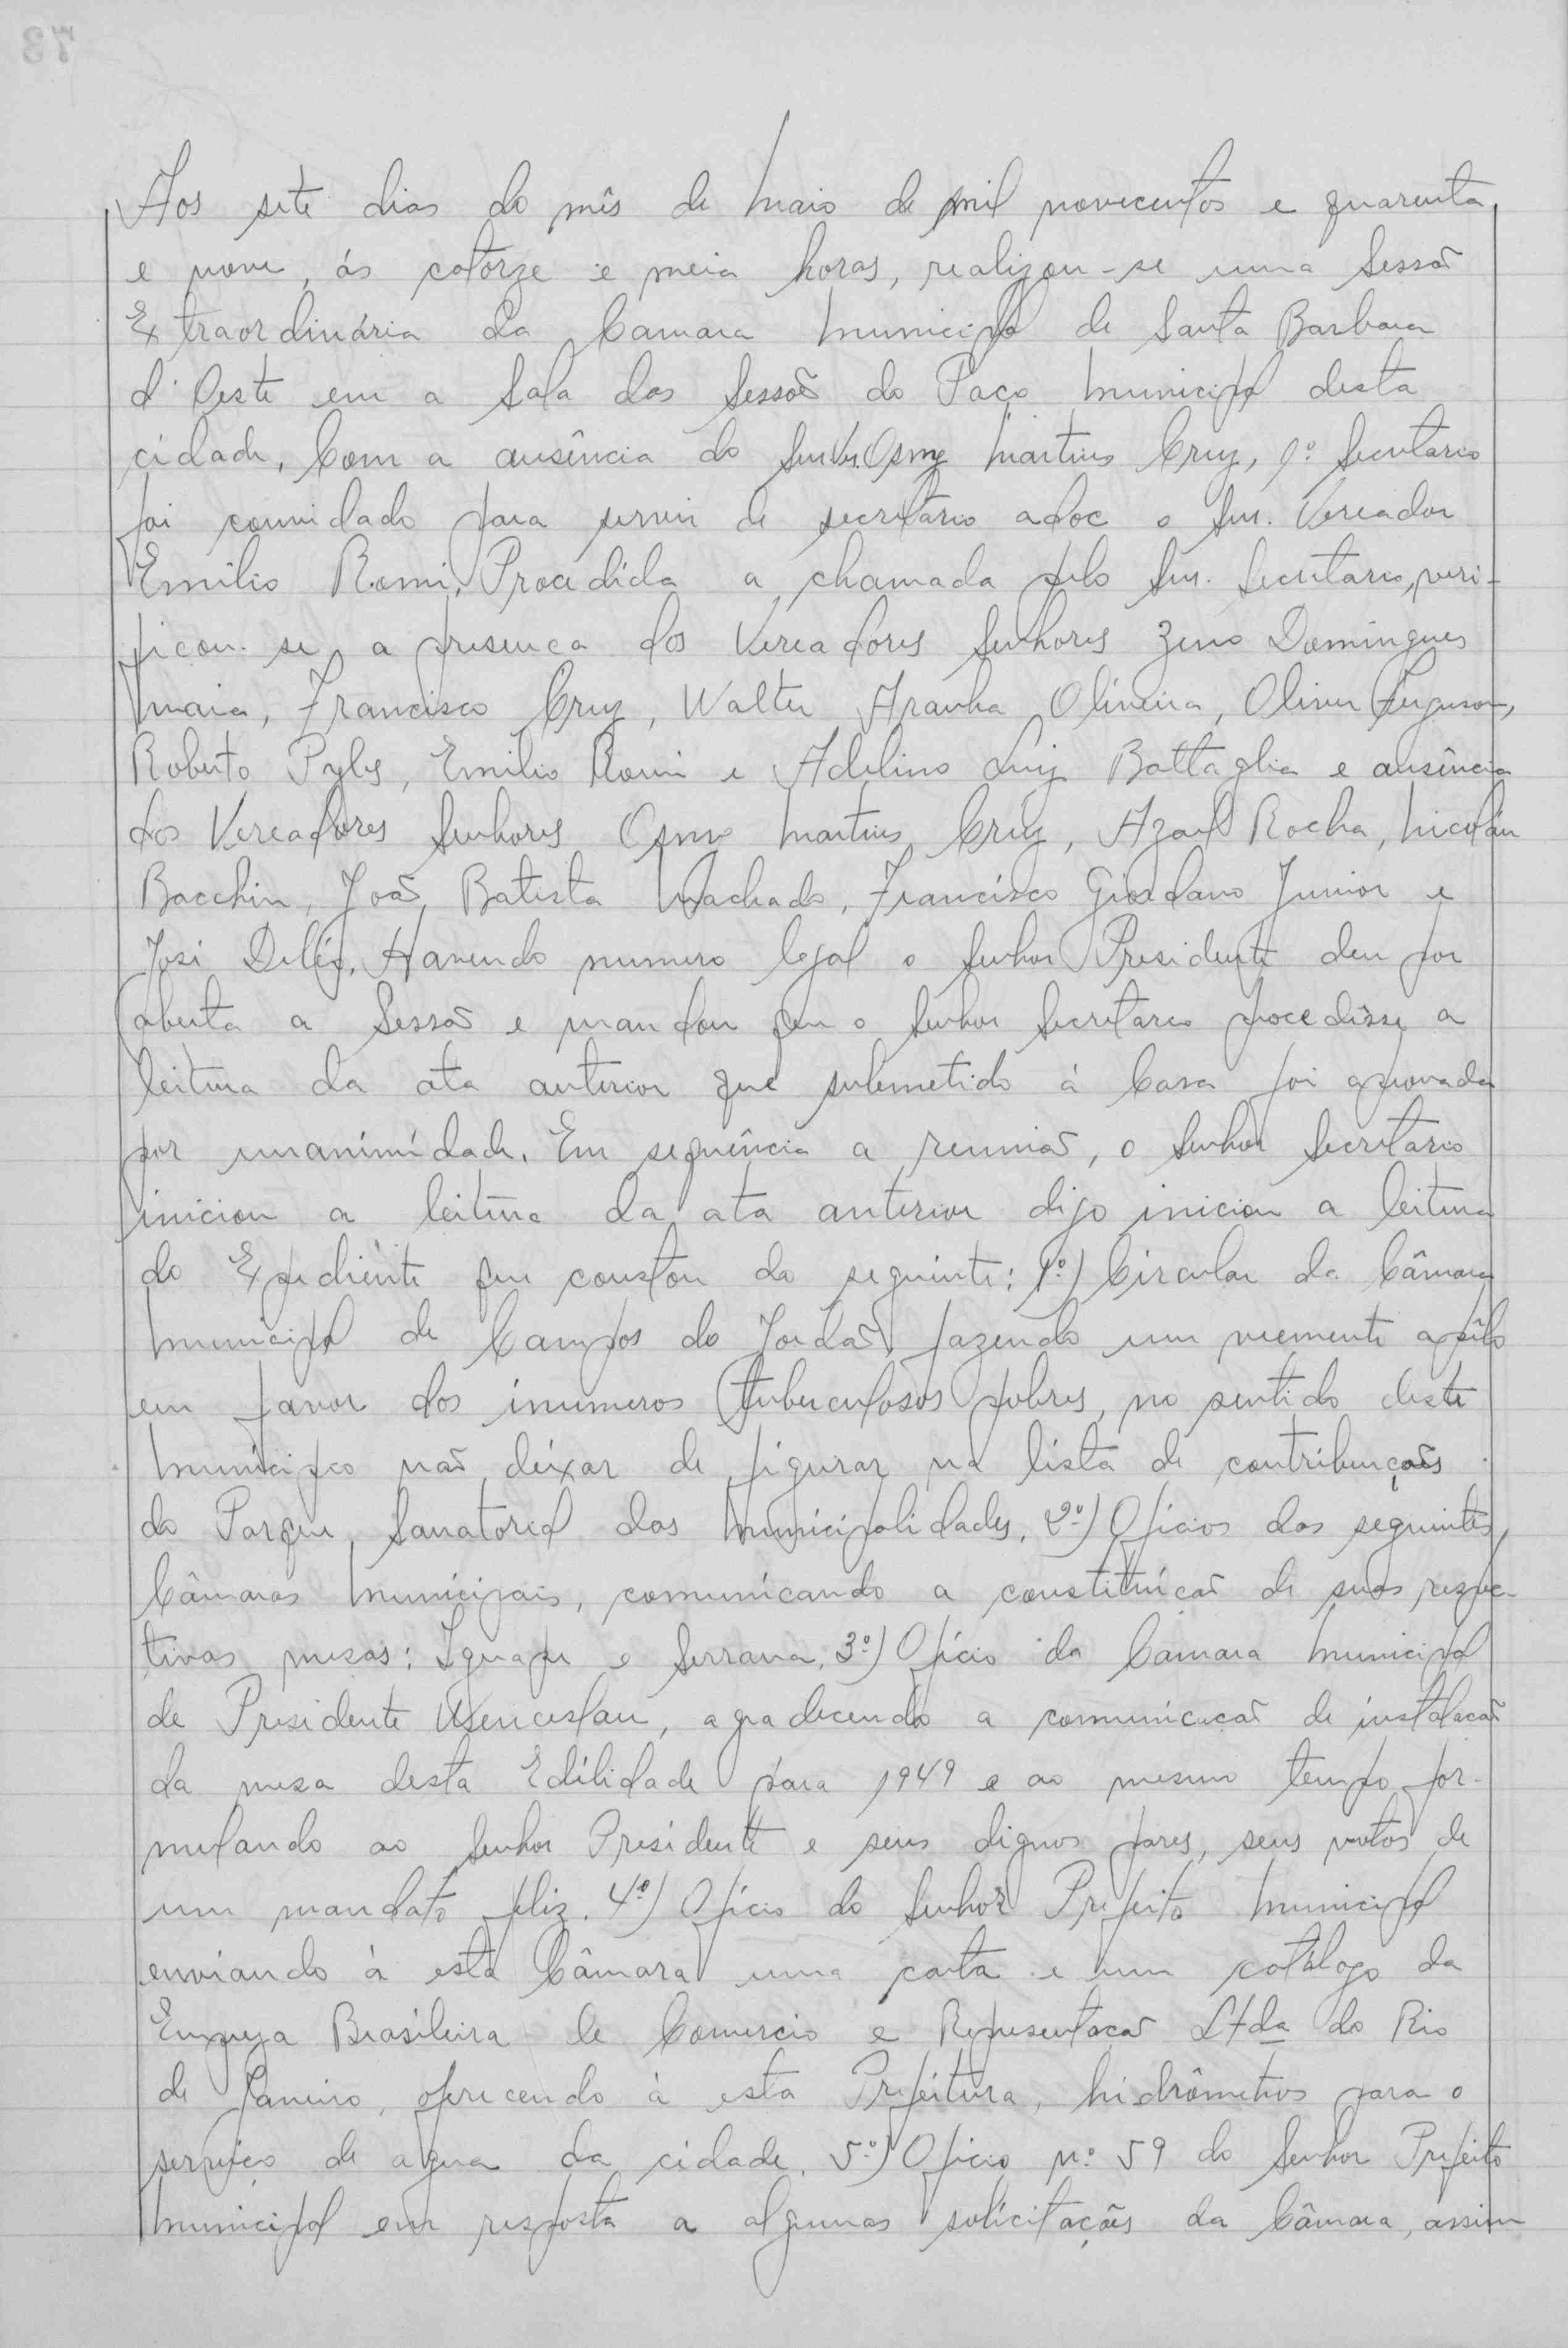 73
Aos sete dias do mês de Maio de mil novecentos e quarenta
e nove, ás catorze e meia horas, realizou-se uma Sessão
Extraordinária da Camara Municipal de Santa Barbara
d'Oeste em a Sala das Sessões do Paço Municipal desta
cidade. Com a ausência do Osmo Martins Cruz, 1º Secretario
foi convidado para servir de secretário adoc o Snr. Vereador
Emilio Romi. Procedida a chamada pelo Snr. Secretario, veri-
ficou-se a presença dos Vereadores Senhores Zeno Domingues
Maia, Francisco Cruz, Walter Aranha Oliveira, Oliver Ferguson,
Roberto Pyles, Emilio Romi e Adelino Luiz Battaglia e ausência
dos Vereadores Senhores Osmo Martins Cruz, Azael Rocha, Nicolau
Bacchin, João Batista Machado, Francisco Giordano Junior e
José Deléo. Havendo numero legal o Senhor Presidente deu por
aberta a Sessão e mandou que o Senhor Secretario procedisse a
leitura da ata anterior que submetido á Casa foi aprovada
por unanimidade. Em sequência a reunião, o Senhor Secretario
iniciou a leitura da ata anterior digo iniciou a leitura
do Expediente que constou do seguinte: 1º) Circular da Câmara
Municipal de Campos do Jordão fazendo um veemente apêlo
em favor dos inumeros tuberculosos pobres, no sentido deste
Municipio não deixar de figurar na lista de contribuições
do Parque Sanatorial das Municipalidades. 2º) Oficios das seguintes
Câmaras Municipais, comunicando a constituição de suas respec-
tivas mesas: Iguape e Serrana. 3º) Ofício da Câmara Municipal
de Presidente Wenceslau, agradecendo a comunicação de instalação
da mesa desta Edilidade para 1949 e ao mesmo tempo for-
mulando ao Senhor Presidente e seus dignos pares, seus votos de
um mandato feliz. 4º) Ofício do Senhor Prefeito Municipal
enviando à esta Câmara uma carta e um catálogo da
Empreza Brasileira de Comercio e Representação Ltda do Rio
de Janeiro, oferecendo à esta Prefeitura, hidrômetros para o
serviço de agua da cidade. 5º) Oficio nº 59 do Senhor Prefeito
Municipal em resposta a algumas solicitações da Câmara, assim